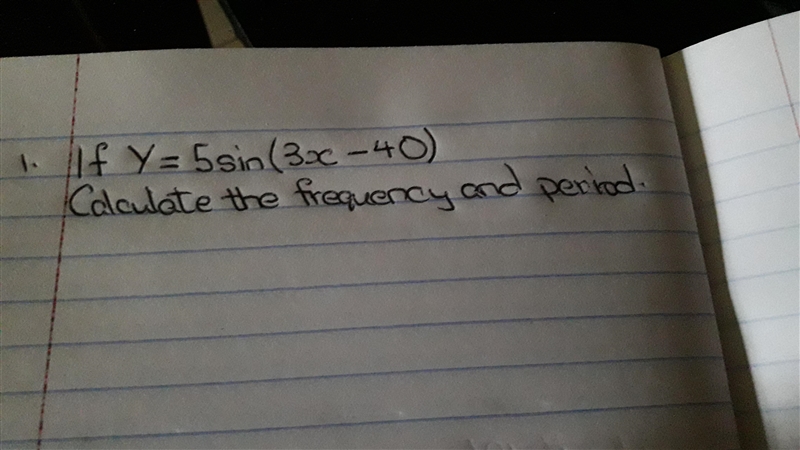 1. If Y = 5sin(3x - 40)
Calculate the frequency and period.